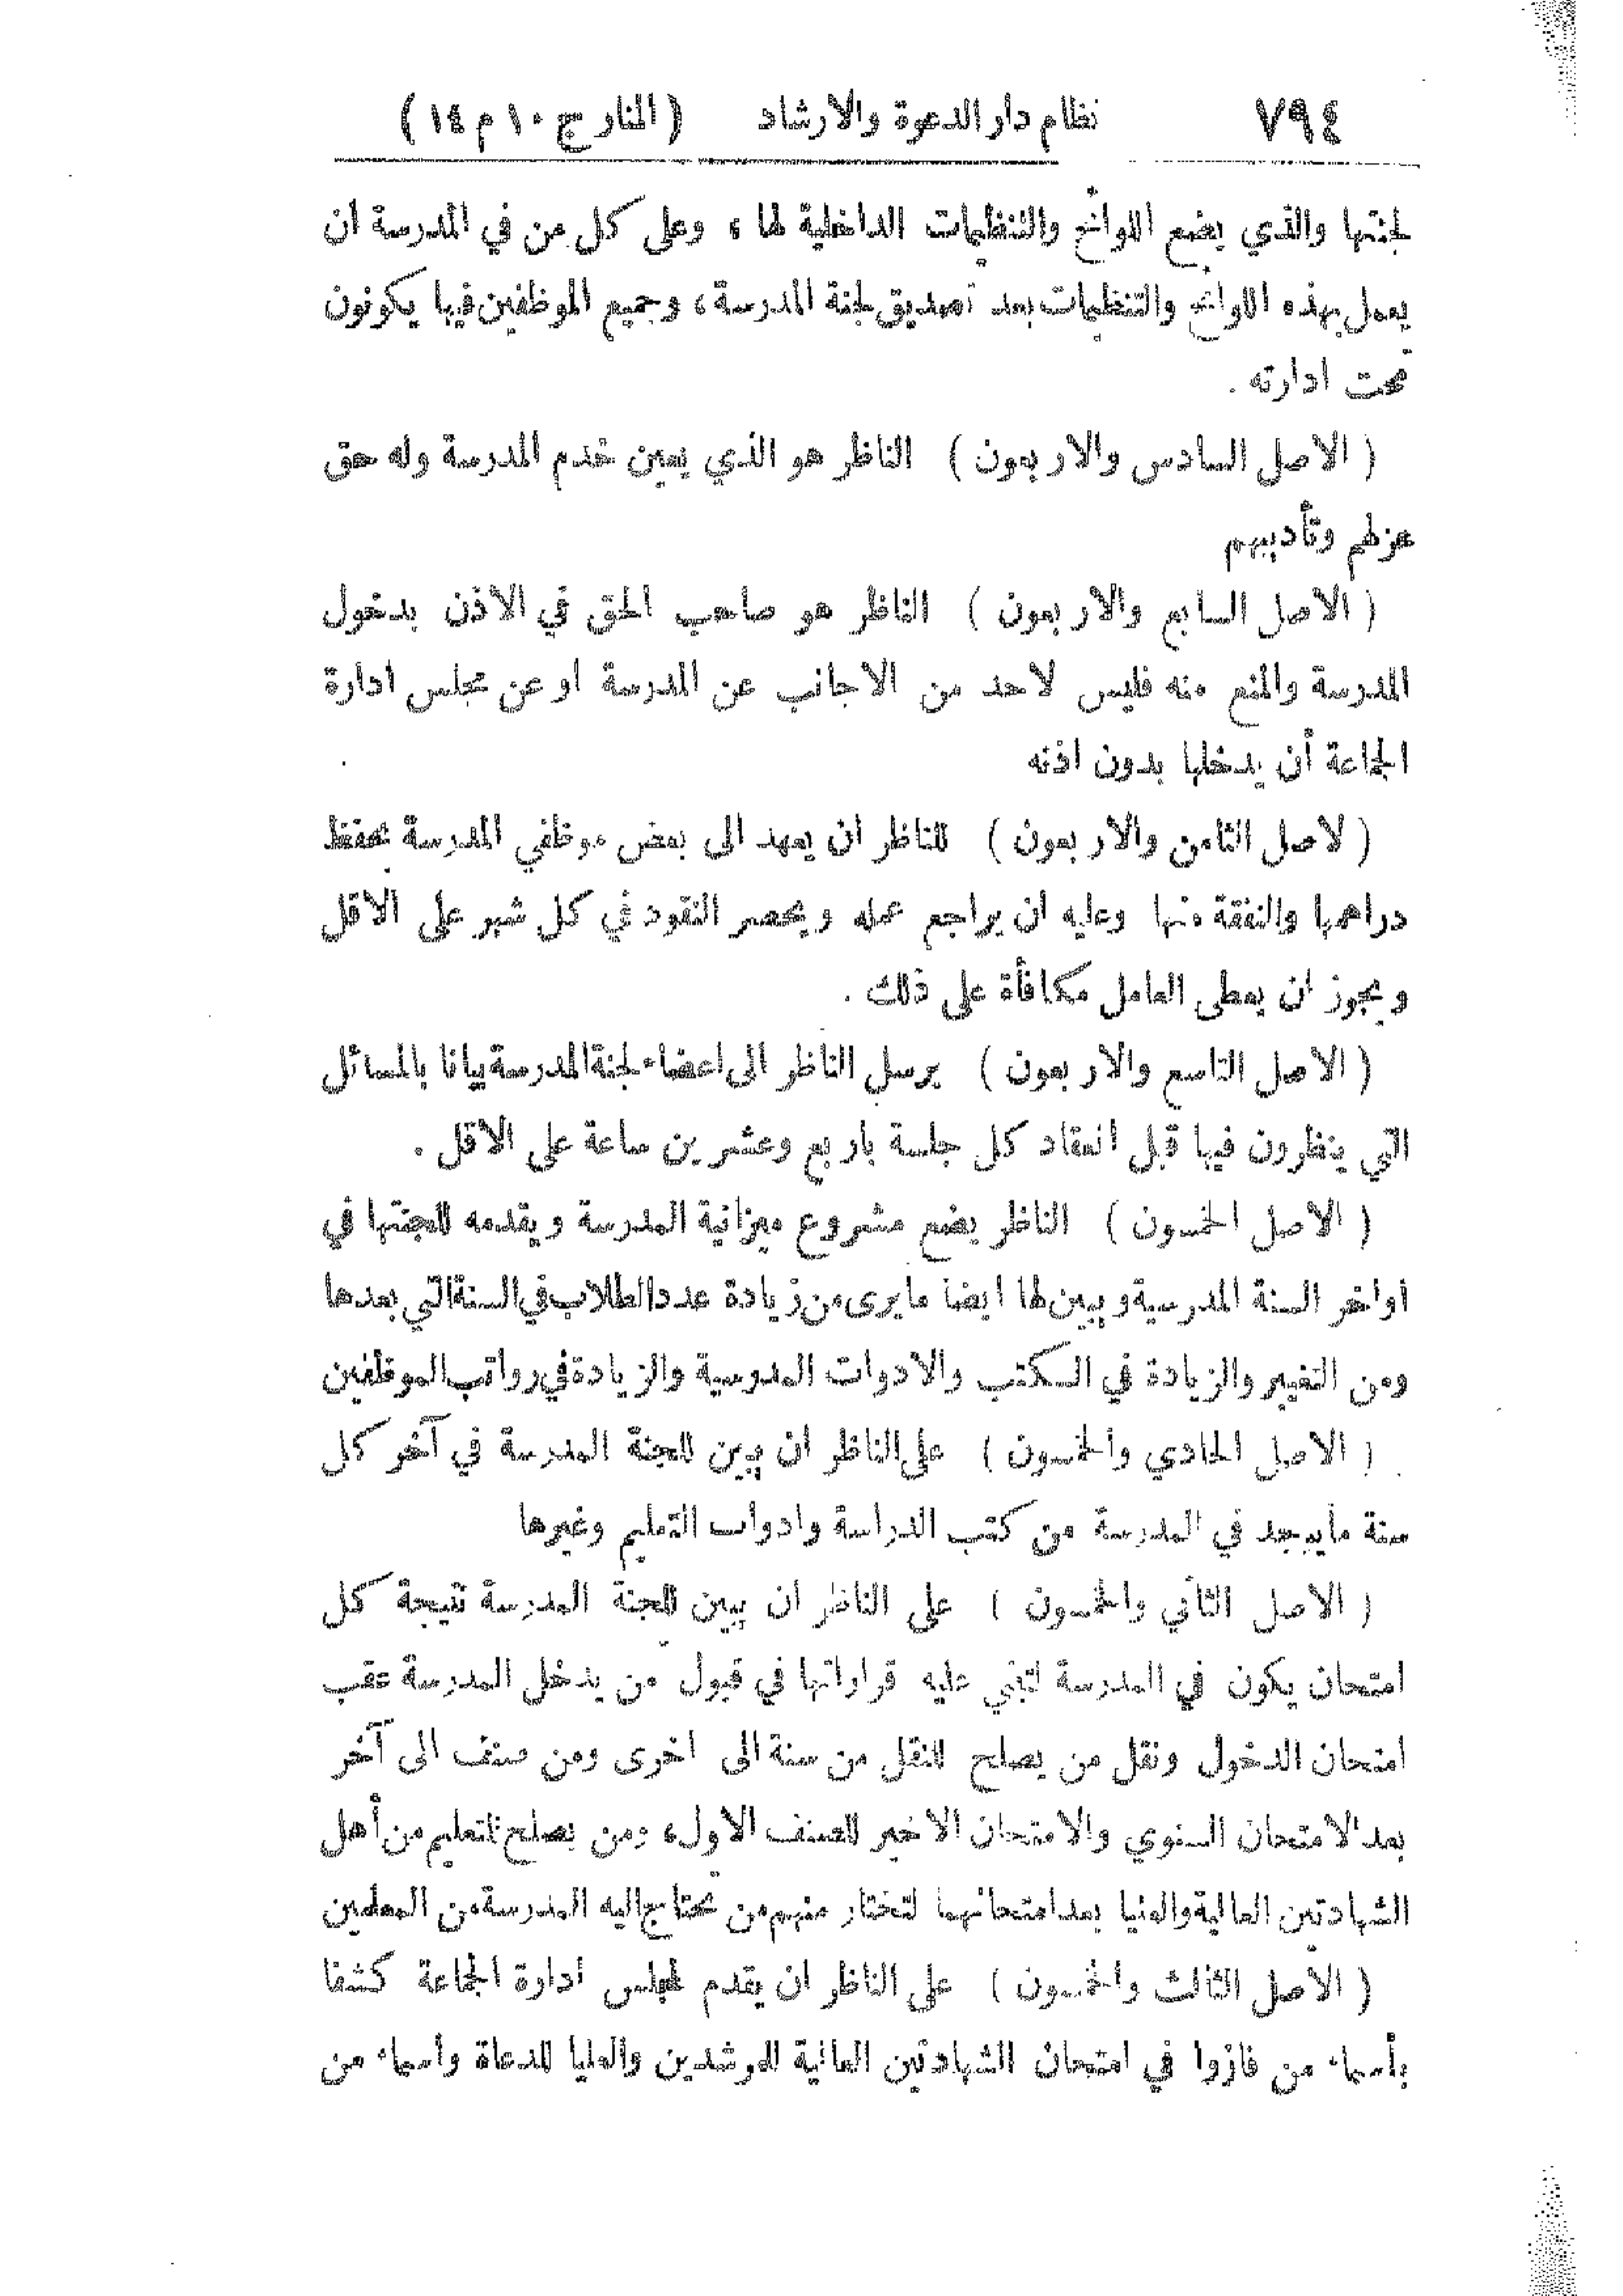 ٧٩٤ نظام دار الدعوة والارشاد (المنار ج ١٠ م ١٤)
لجنتها والذي يضع اللوائح والتنظيمات الداخلية لها ، وعلى كل من في المدرسة ان
يعمل بهذه اللوائح والتنظيمات بعد تصديق لجنة المدرسة ، وجميع الموظفين فيها يكونون
تحت ادارته .
( الاصل السادس والاربعون ) الناظر هو الذي يعين خدم المدرسة وله حق
عزلهم وتأديبهم
( الاصل السابع والاربعون ) الناظر هو صاحب الحق في الاذن بدخول
المدرسة والمنع منه فليس لاحد من الاجانب عن المدرسة او عن مجلس ادارة
الجماعة أن يدخلها بدون اذنه
( لاصل الثامن والاربعون ) للناظر ان يعهد الى بعض موظفي المدرسة بحفظ
دراهمها والنفقة منها وعليه ان يراجع عمله ويحصر النقود في كل شهر على الاقل
ويجوز ان يعطى العامل مكافأة على ذلك .
( الاصل التاسع والاربعون ) يرسل الناظر الى اعضاء لجنة المدرسة بيانا بالمسائل
التي ينظرون فيها قبل انعقاد كل جلسة باربع وعشرين ساعة على الاقل .
( الاصل الخمسون ) الناظر يضع مشروع ميزانية المدرسة ويقدمه للجنتها في
اواخر السنة المدرسية ويبين لها ايضا ما يرى من زيادة عدد الطلاب في السنة التي بعدها
ومن التغيير والزيادة في الكتب والادوات المدرسية والزيادة في رواتب الموظفين
( الاصل الحادي والخمسون ) على الناظر ان يبين للجنة المدرسة في آخر كل
سنة ما يوجد في المدرسة من كتب الدراسة وادوات التعليم وغيرها
( الاصل الثاني والخمسون ) على الناظر ان يبين للجنة المدرسة نتيجة كل
امتحان يكون في المدرسة لتبني عليه قراراتها في قبول من يدخل المدرسة عقب
امتحان الدخول ونقل من يصلح للنقل من سنة الى اخرى ومن صنف الى آخر
بعد الامتحان السنوي والامتحان الاخير للصنف الاول، ومن يصلح للتعليم من أهل
الشهادتين العالية والعليا بعد امتحانهما لتختار منهم من تحتاج اليه المدرسة من المعلمين
( الاصل الثالث والخمسون ) على الناظر ان يقدم لمجلس ادارة الجماعة كشفا
بأسماء من فازوا في امتحان الشهادتين العالية للمرشدين والعليا للدعاة وأسماء من